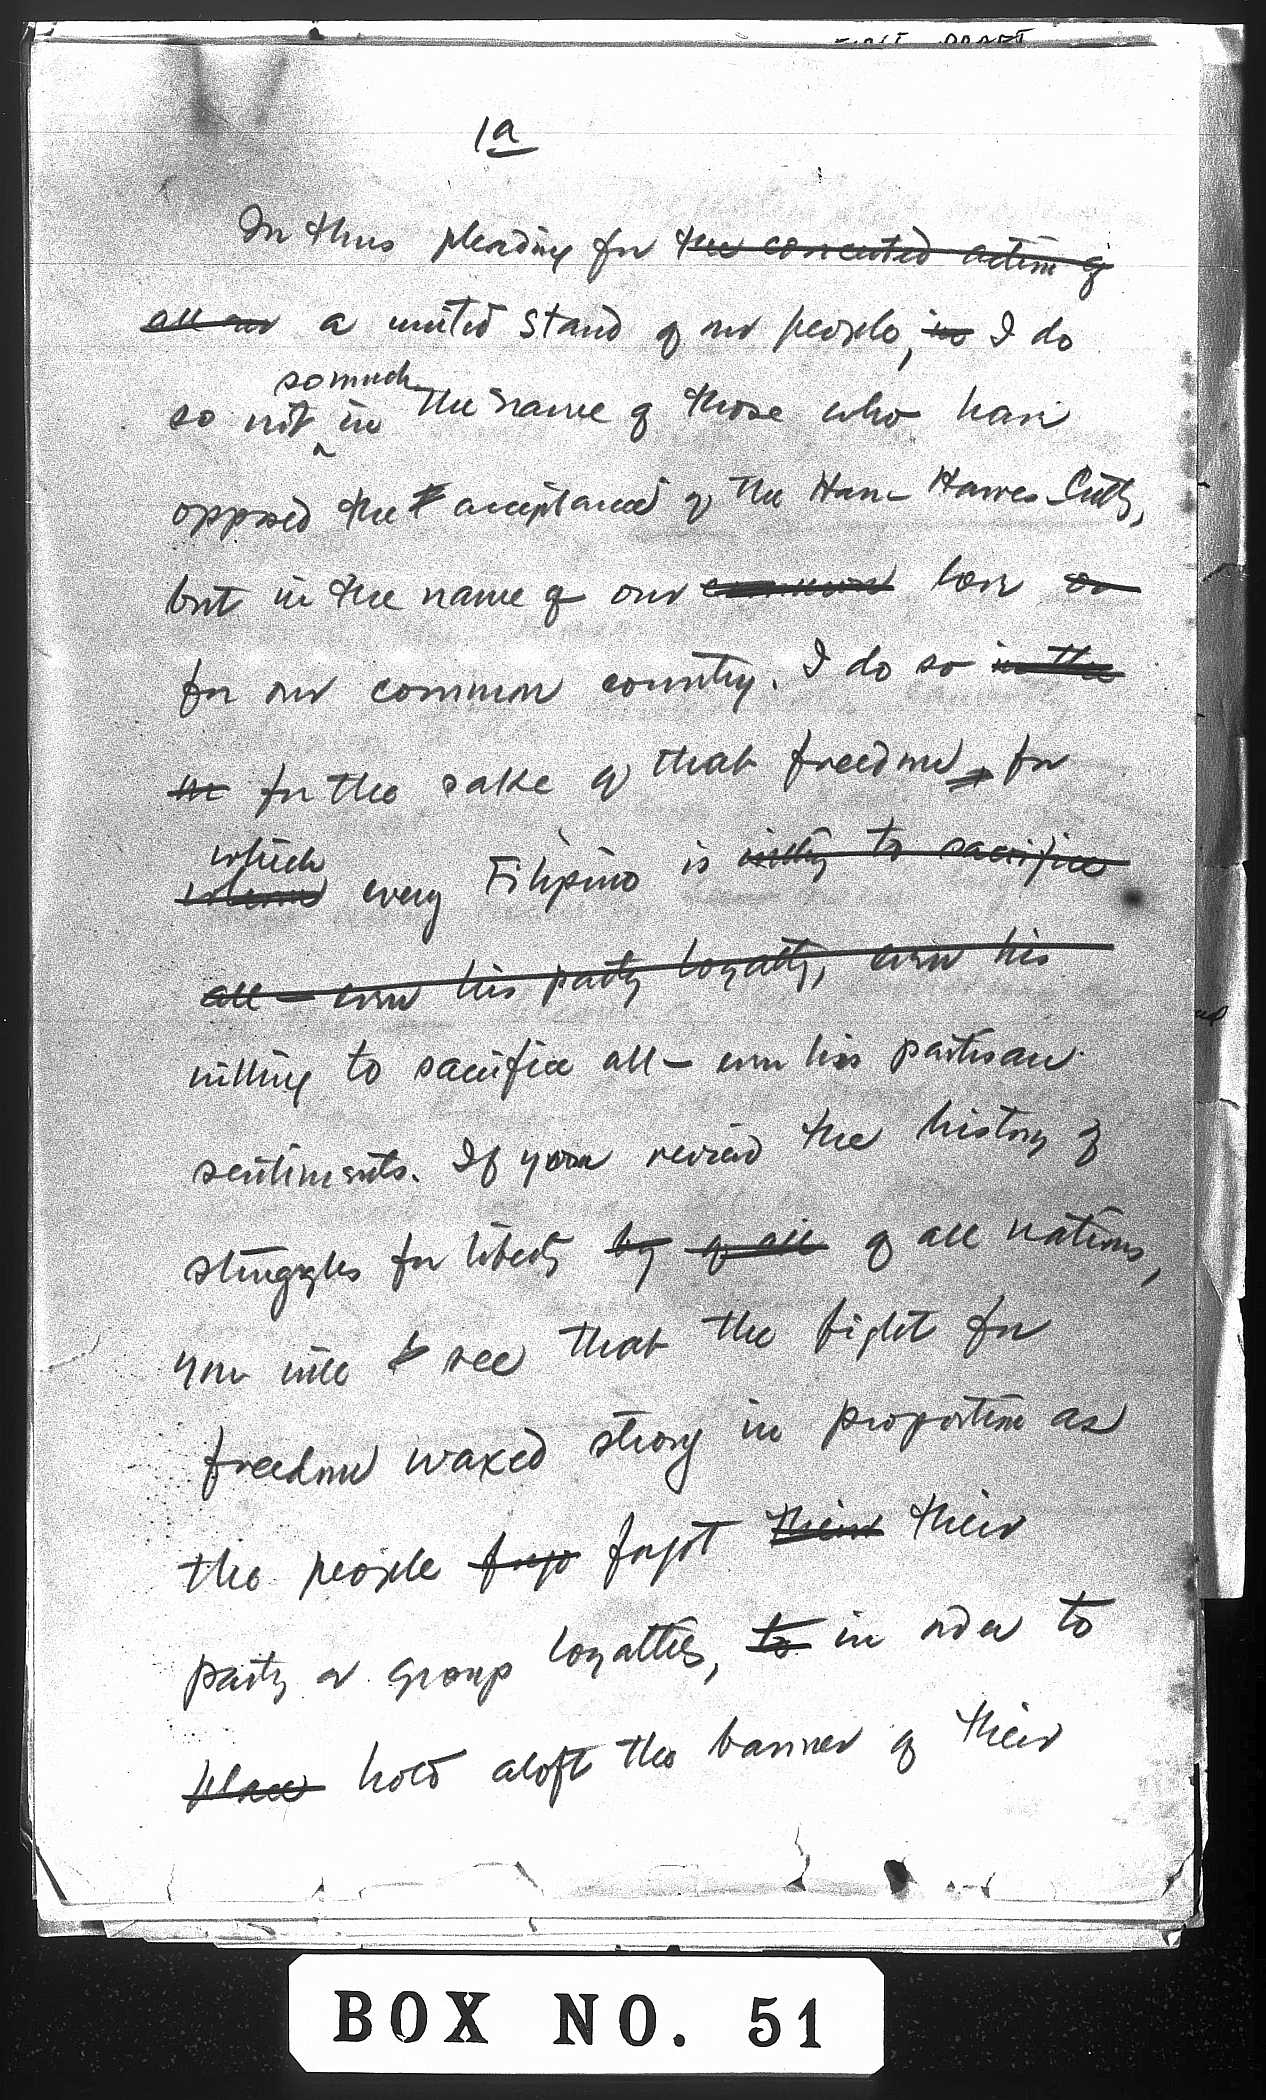 FIRST DRAFT
1a
In thus pleading for the concerted action of
all our a united stand of our people, in I do
so much
so not in the name of those who have
opposed the acceptance of the Hare Hawes Cutting,
but in the name of our common love or
for our common country. I do so in the
in for the sake of that freedom for
which
whom every Filipino is willing to sacrifice
all — even his party loyalty, even his
willing to sacrifice all — even his partisan
sentiments. If you review the history of
struggles for liberty by of all of all nations,
you will see that the fight for
freedom waxed strong in proportion as
the people forgo forgot their their
party or group loyalties, to in order to
place hold aloft the banner of their
BOX NO. 51